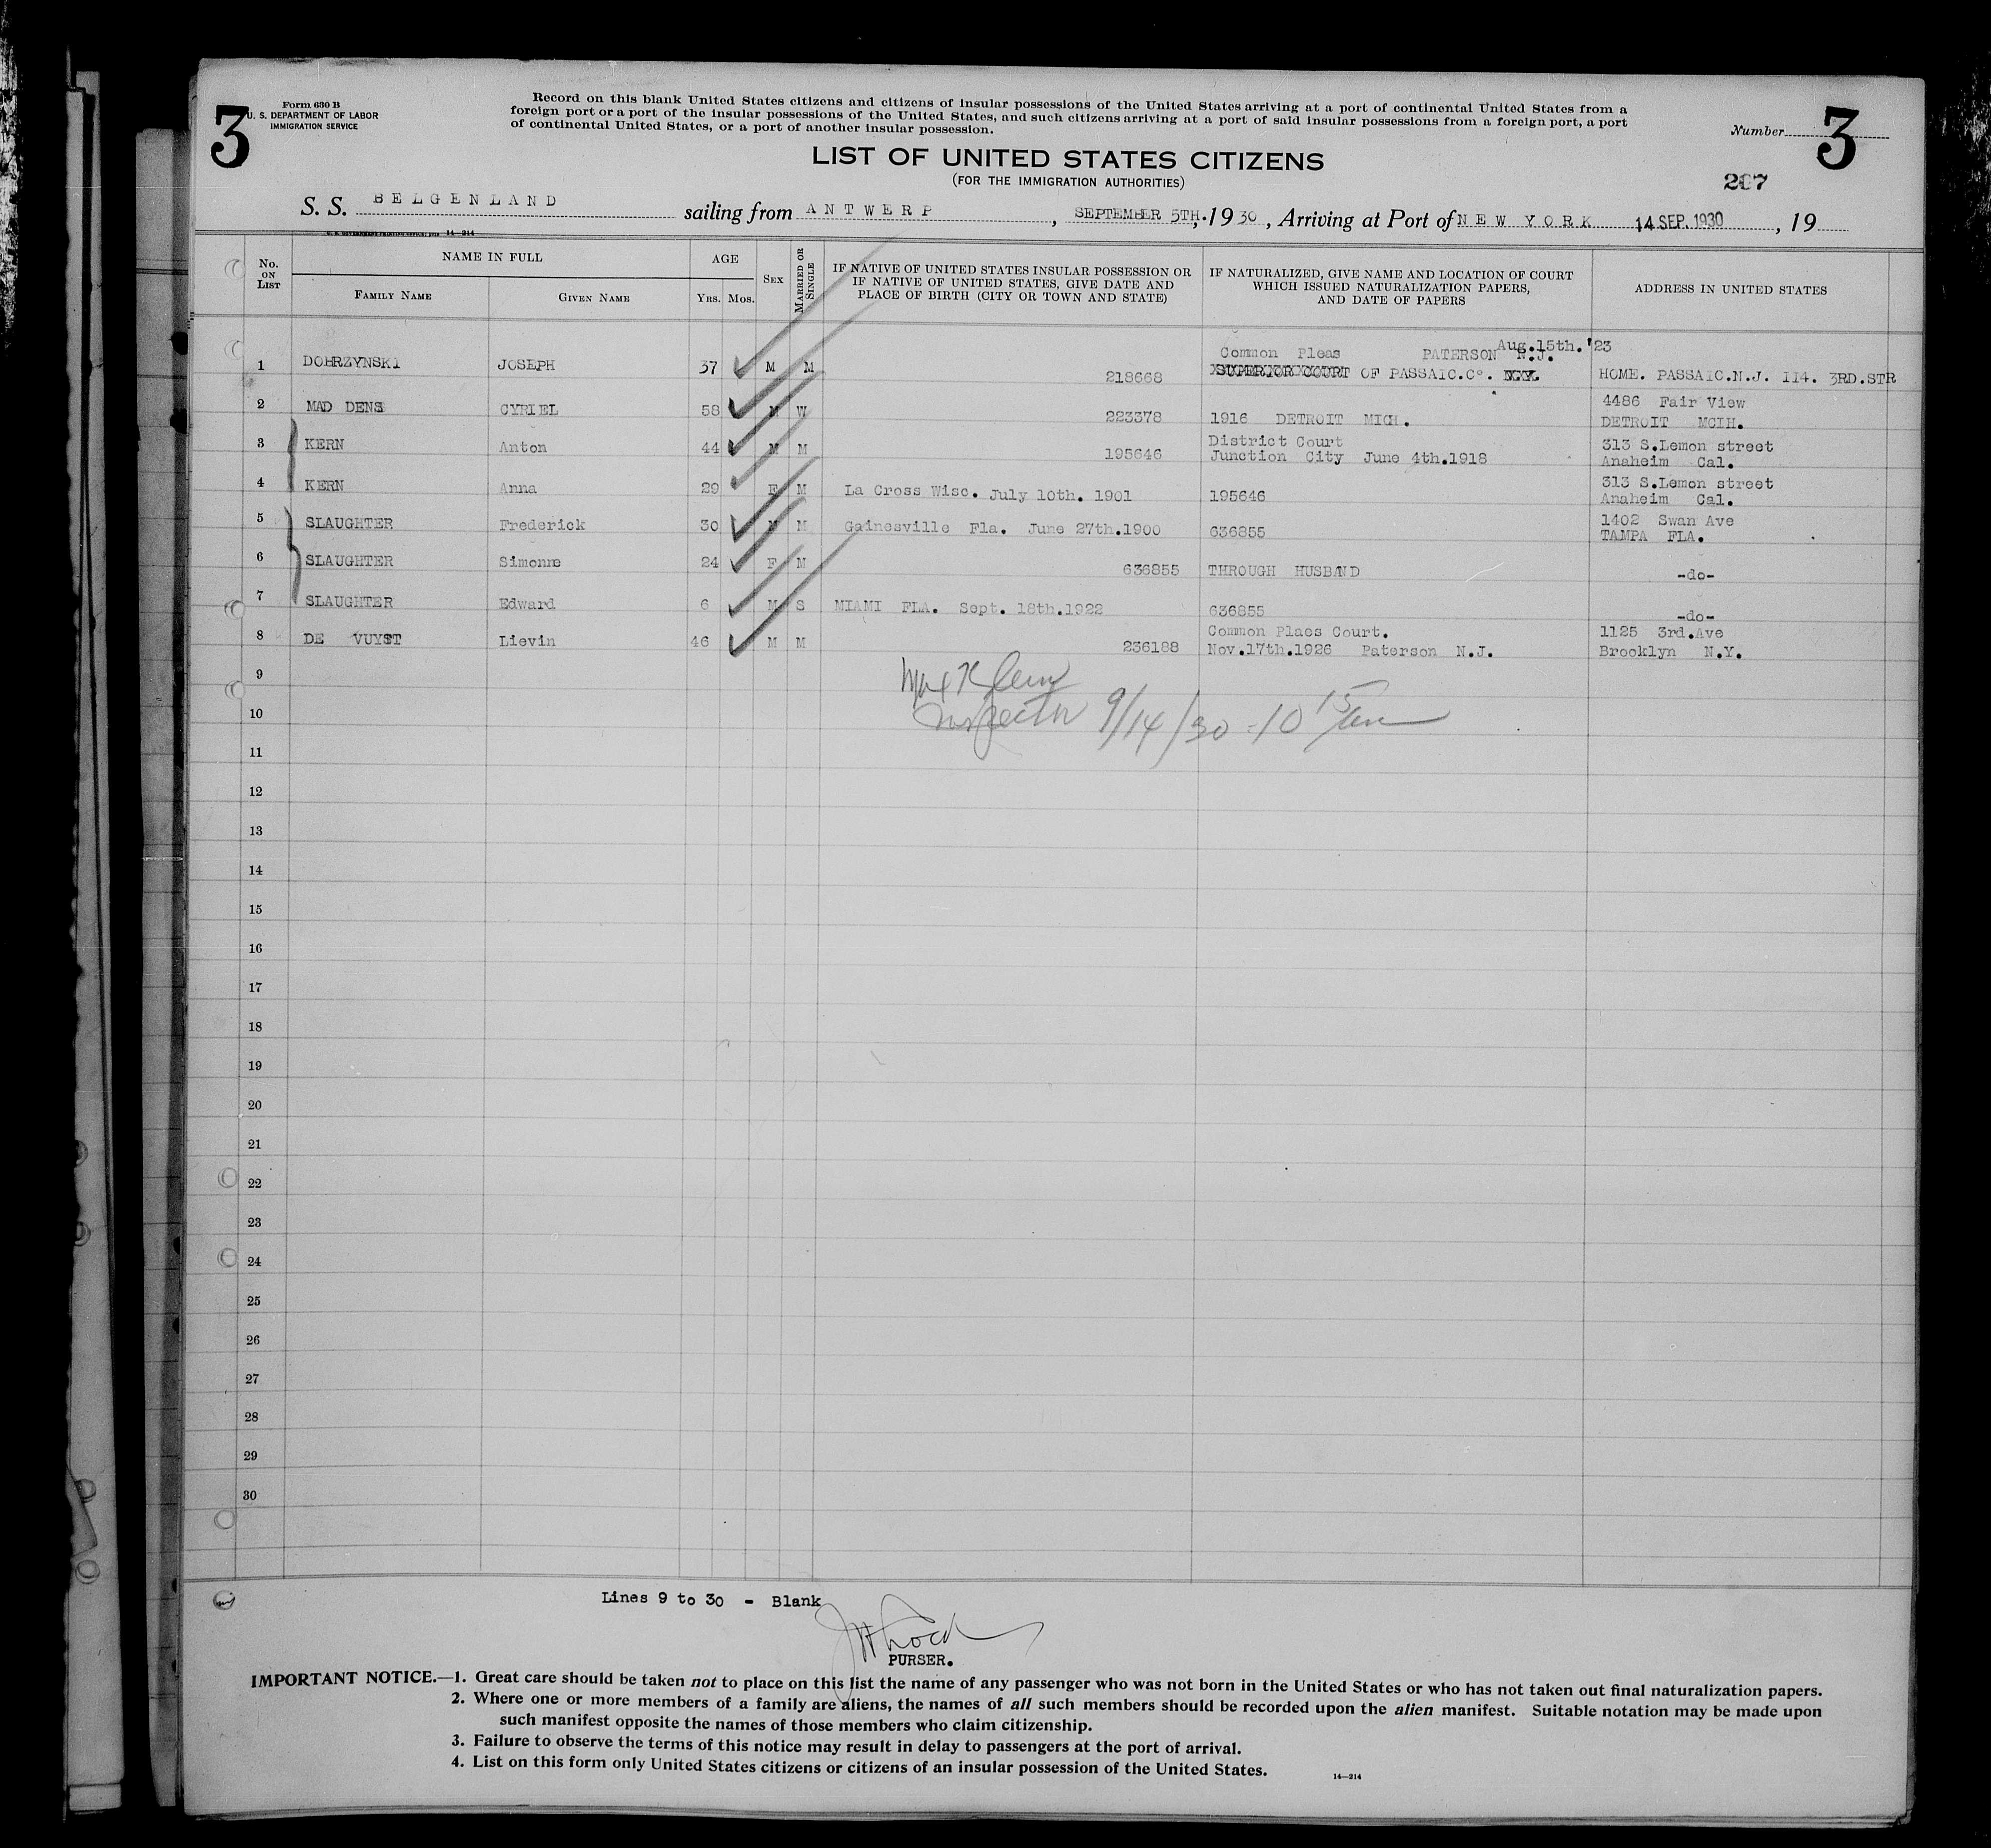 3
Form 630 B
U. S. DEPARTMENT OF LABOR
IMMIGRATION SERVICE
Record on this blank United States citizens and citizens of insular possessions of the United States arriving at a port of continental United States from a
foreign port or a port of the insular possessions of the United States, and such citizens arriving at a port of said insular possessions from a foreign port, a port
of continental United States, or a port of another insular possession.
Number 3
LIST OF UNITED STATES CITIZENS
(FOR THE IMMIGRATION AUTHORITIES)
207
S. S. BELGENLAND sailing from ANTWERP, SEPTEMBER 5TH, 1930, Arriving at Port of NEW YORK 14 SEP. 1930, 19
14-214
No. ON LIST
NAME IN FULL
FAMILY NAME GIVEN NAME
AGE
YRS. MOS.
SEX
MARRIED OR SINGLE
IF NATIVE OF UNITED STATES INSULAR POSSESSION OR
IF NATIVE OF UNITED STATES, GIVE DATE AND
PLACE OF BIRTH (CITY OR TOWN AND STATE)
IF NATURALIZED, GIVE NAME AND LOCATION OF COURT
WHICH ISSUED NATURALIZATION PAPERS,
AND DATE OF PAPERS
ADDRESS IN UNITED STATES
Aug.15th.'23
Common Pleas PATERSON N.J.
1 DOBRZYNSKI JOSEPH 37 M M 218668 SUPERIOR COURT OF PASSAIC.Co. HOME. PASSAIC.N.J. 114. 3RD.STR
4486 Fair View
2 MAD DENS CYRIEL 58 M W 223378 1916 DETROIT MICH. DETROIT MCIH.
District Court 313 S.Lemon street
3 KERN Anton 44 M M 195646 Junction City June 4th.1918 Anaheim Cal.
313 S.Lemon street
4 KERN Anna 29 F M La Cross Wisc. July 10th. 1901 195646 Anaheim Cal.
1402 Swan Ave
5 SLAUGHTER Frederick 30 M M Gainesville Fla. June 27th.1900 636855 TAMPA FLA.
6 SLAUGHTER Simonne 24 F M 636855 THROUGH HUSBAND -do-
7 SLAUGHTER Edward 6 M S MIAMI FLA. Sept. 18th.1922 636855 -do-
Common Plaes Court. 1125 3rd.Ave
8 DE VUYST Lievin 46 M M 236188 Nov.17th.1926 Paterson N.J. Brooklyn N.Y.
9
Inspector 9/14/30 - 10 15 am
10
11
12
13
14
15
16
17
18
19
20
21
22
23
24
25
26
27
28
29
30
Lines 9 to 30 - Blank
PURSER.
IMPORTANT NOTICE.—1. Great care should be taken not to place on this list the name of any passenger who was not born in the United States or who has not taken out final naturalization papers.
2. Where one or more members of a family are aliens, the names of all such members should be recorded upon the alien manifest. Suitable notation may be made upon
such manifest opposite the names of those members who claim citizenship.
3. Failure to observe the terms of this notice may result in delay to passengers at the port of arrival.
4. List on this form only United States citizens or citizens of an insular possession of the United States.
14—214